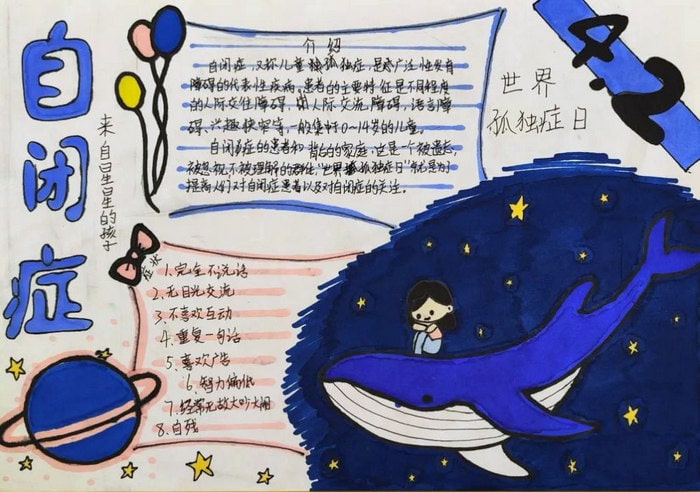 自闭症
来自星星的孩子
介绍
自闭症，又称儿童孤独症，是广泛性发育
障碍的代表性疾病，患者的主要特征是不同程度
的人际交往障碍，如人际交流障碍，语言障
碍、兴趣狭窄等，一般集中0-14岁的儿童。
自闭症的患者和背后的家庭，这是一个被遗忘，
被忽视，不被理解的群体，"世界孤独症日"就是为
提高人们对自闭症患者以及对自闭症的关注。
4.2
世界
孤独症日
症状
1.完全不说话
2.无目光交流
3.不喜欢互动
4.重复一句话
5.喜欢广告
6.智力偏低
7.经常无故大吵大闹
8.自残